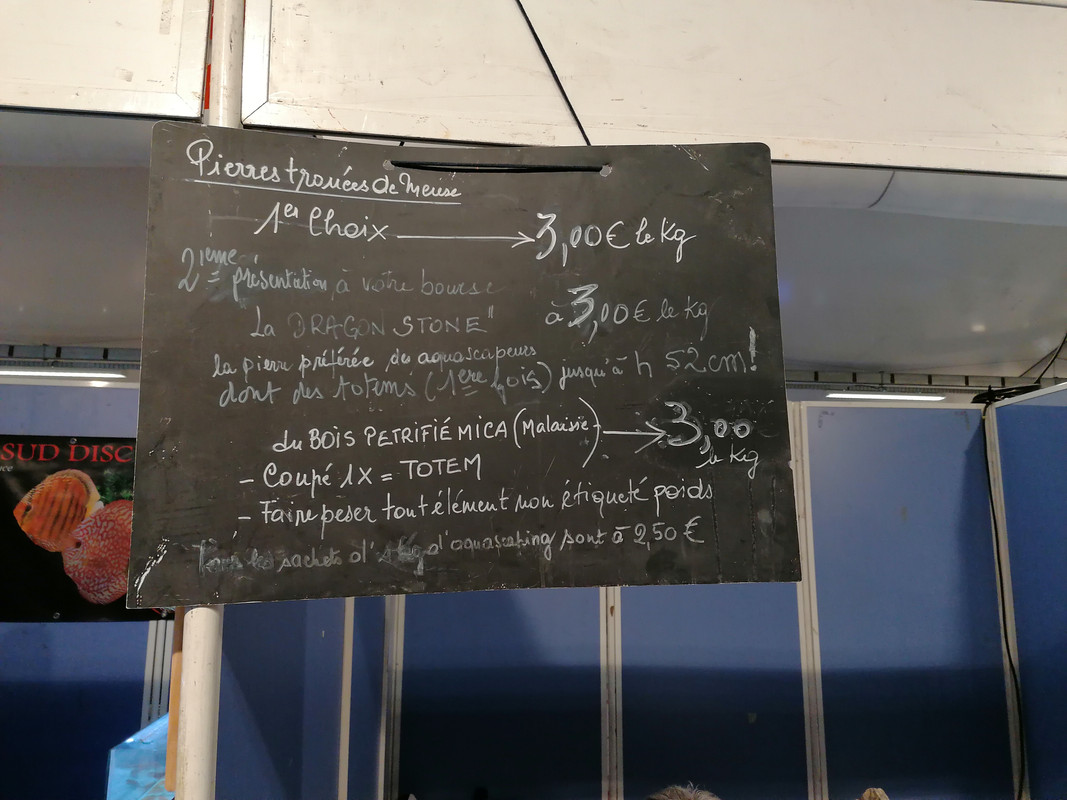 Pierres trouées de Meuse
1er Choix → 3,00 € le Kg
2ieme = présentation à votre bourse
La DRAGON STONE" à 3,00 € le Kg
la pierre préférée des aquascapeurs
dont des totems (1ère fois) jusqu'à h 52 cm!
du BOIS PETRIFIÉ MICA (Malaisie) → 3,00
le Kg
- Coupé 1X = TOTEM
- Faire peser tout élément non étiqueté poids
les sachets d' d'aquascaping sont à 2,50 €
SUD DISC